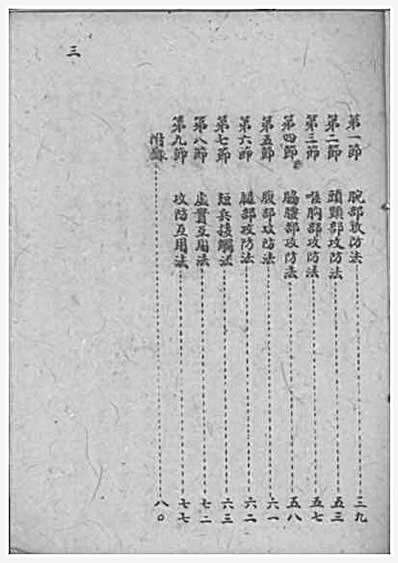 第一節 腕部攻防法 三九
第二節 頭頸部攻防法 五三
第三節 喉胸部攻防法 五七
第四節 脇腰部攻防法 五八
第五節 腹部攻防法 六一
第六節 腿部攻防法 六二
第七節 短兵接觸法 六三
第八節 虛實互用法 七二
第九節 攻防互用法 七七
附錄 八〇
三